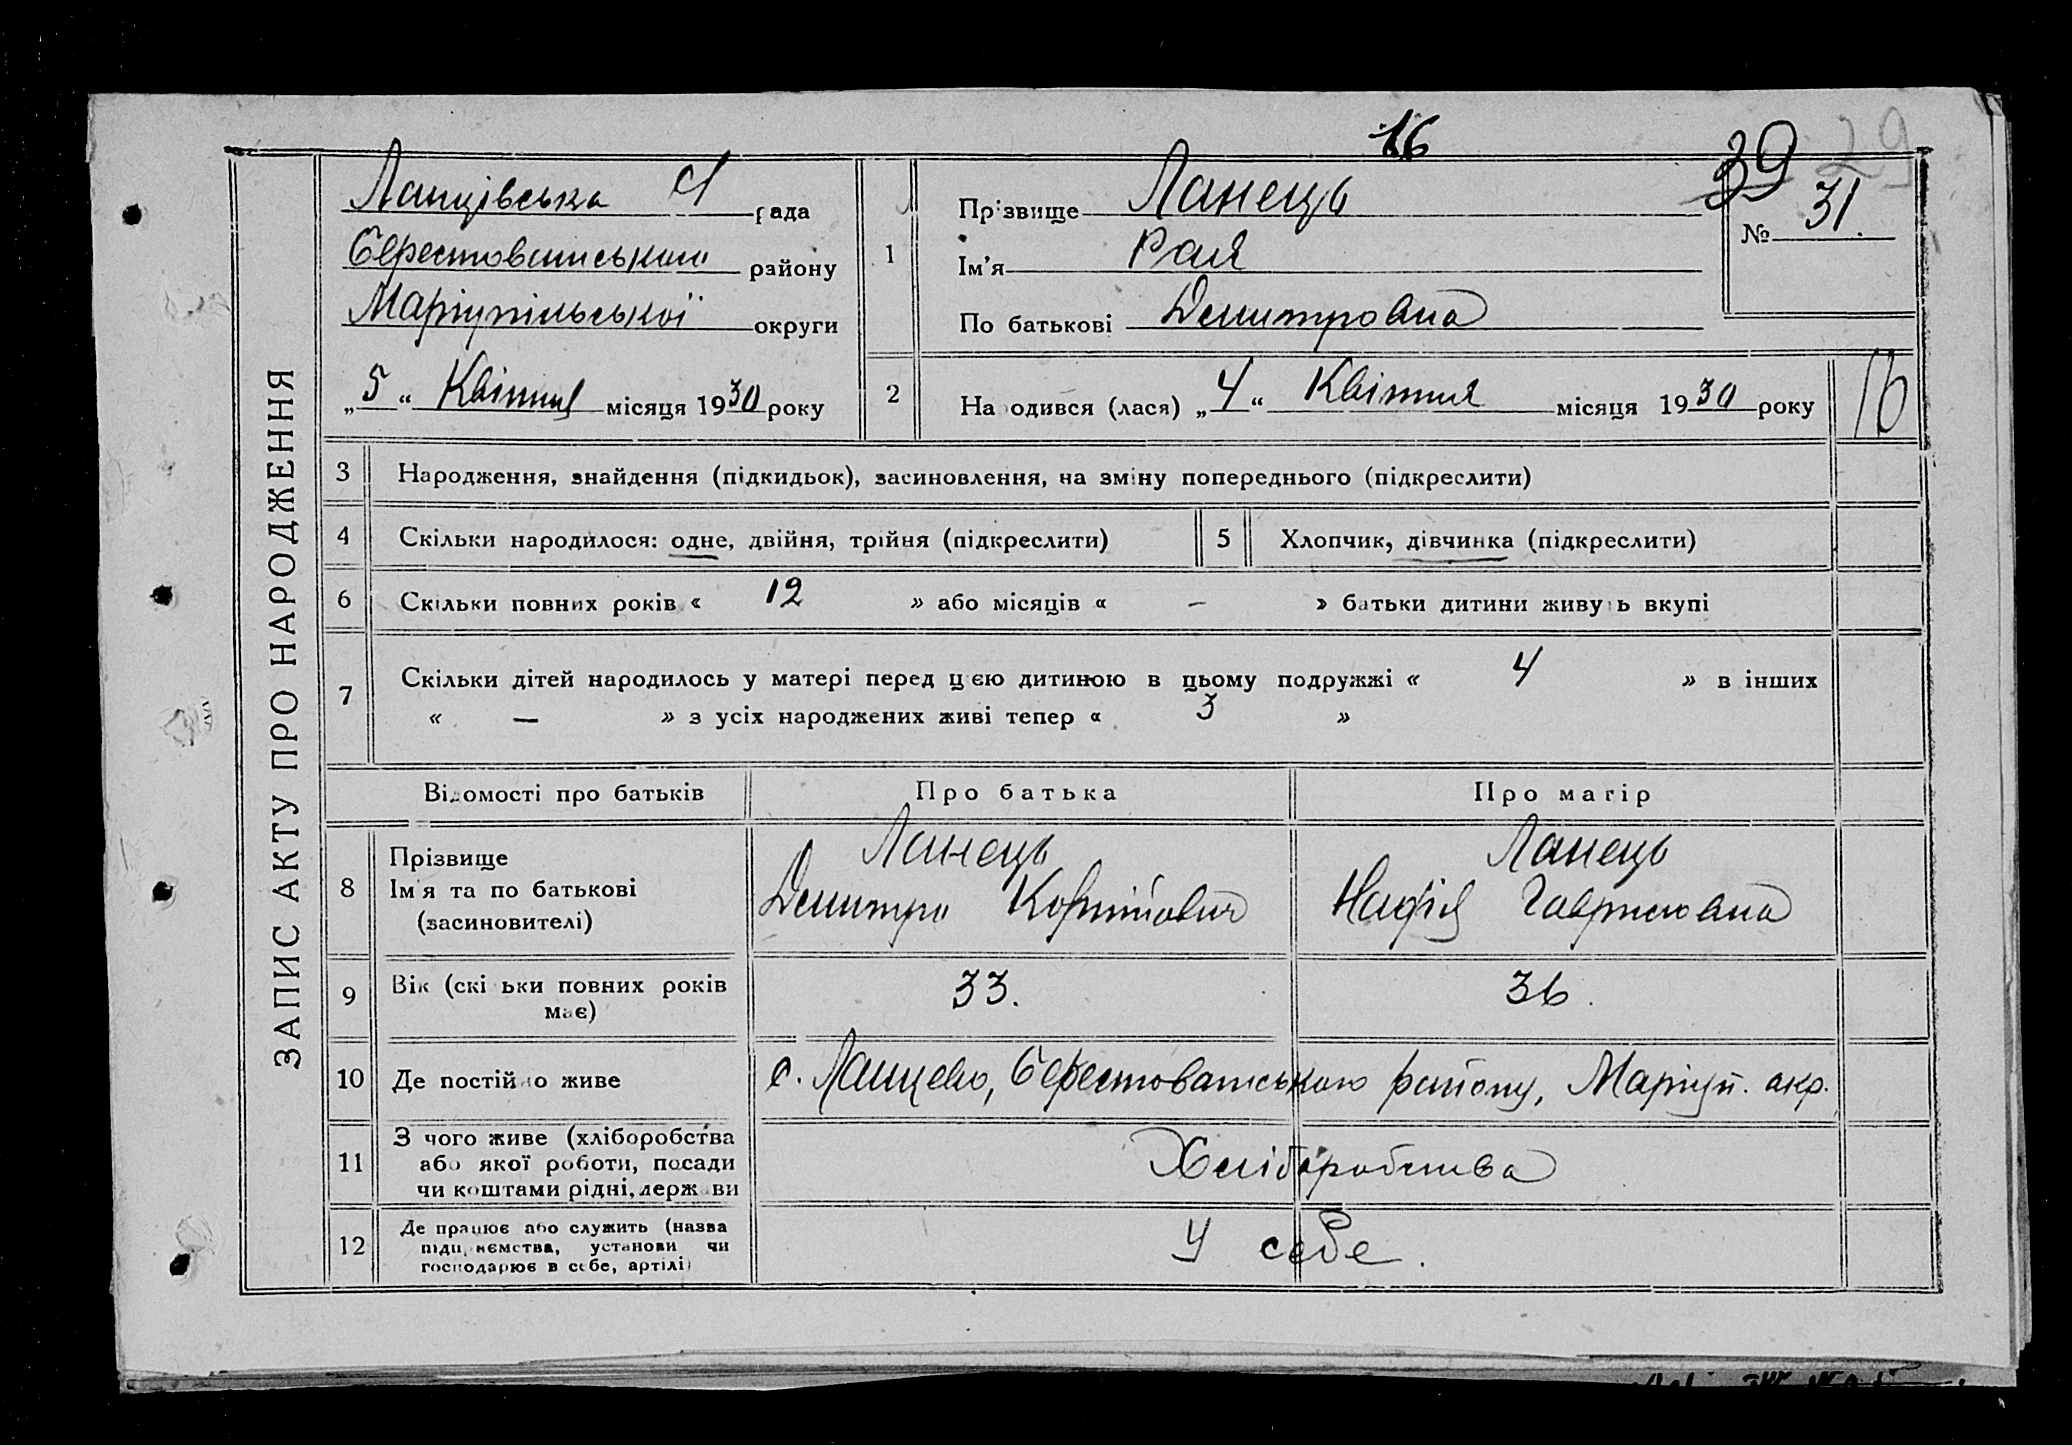 16
39 29
ЗАПИС АКТУ ПРО НАРОДЖЕННЯ
Ланцівська С/ рада
Берестоватського району
Маріупільської округи
„5“ Квітня місяця 1930 року
1
Прізвище Ланець
Ім'я Рая
По батькові Демитровна
№ 31.
2 На одився (лася) „4“ Квітня місяця 1930 року
16
3 Народження, знайдення (підкидьок), засиновлення, на зміну попереднього (підкреслити)
4 Скільки народилося: одне, двійня, трійня (підкреслити) 5 Хлопчик, дівчинка (підкреслити)
6 Скільки повних років « 12 » або місяців « – » батьки дитини живуть вкупі
7 Скільки дітей народилось у матері перед цією дитиною в цьому подружжі « 4 » в інших
« — » з усіх народжених живі тепер « 3 »
Відомості про батьків Про батька Про матір
8 Прізвище
Ім'я та по батькові
(засиновителі)
Ланець
Демитро
Ланець
Гавриловна
9 Вік (скі ьки повних років
має)
33. 36.
10 Де постійно живе с. Ланцево, Берестоватського району, Маріуп. окр.
11 З чого живе (хліборобства
або якої роботи, посади
чи коштами рідні, держави
Хліборобства
12 Де працює або служить (назва
підприємства, установи чи
господарює в себе, артілі)
У себе.